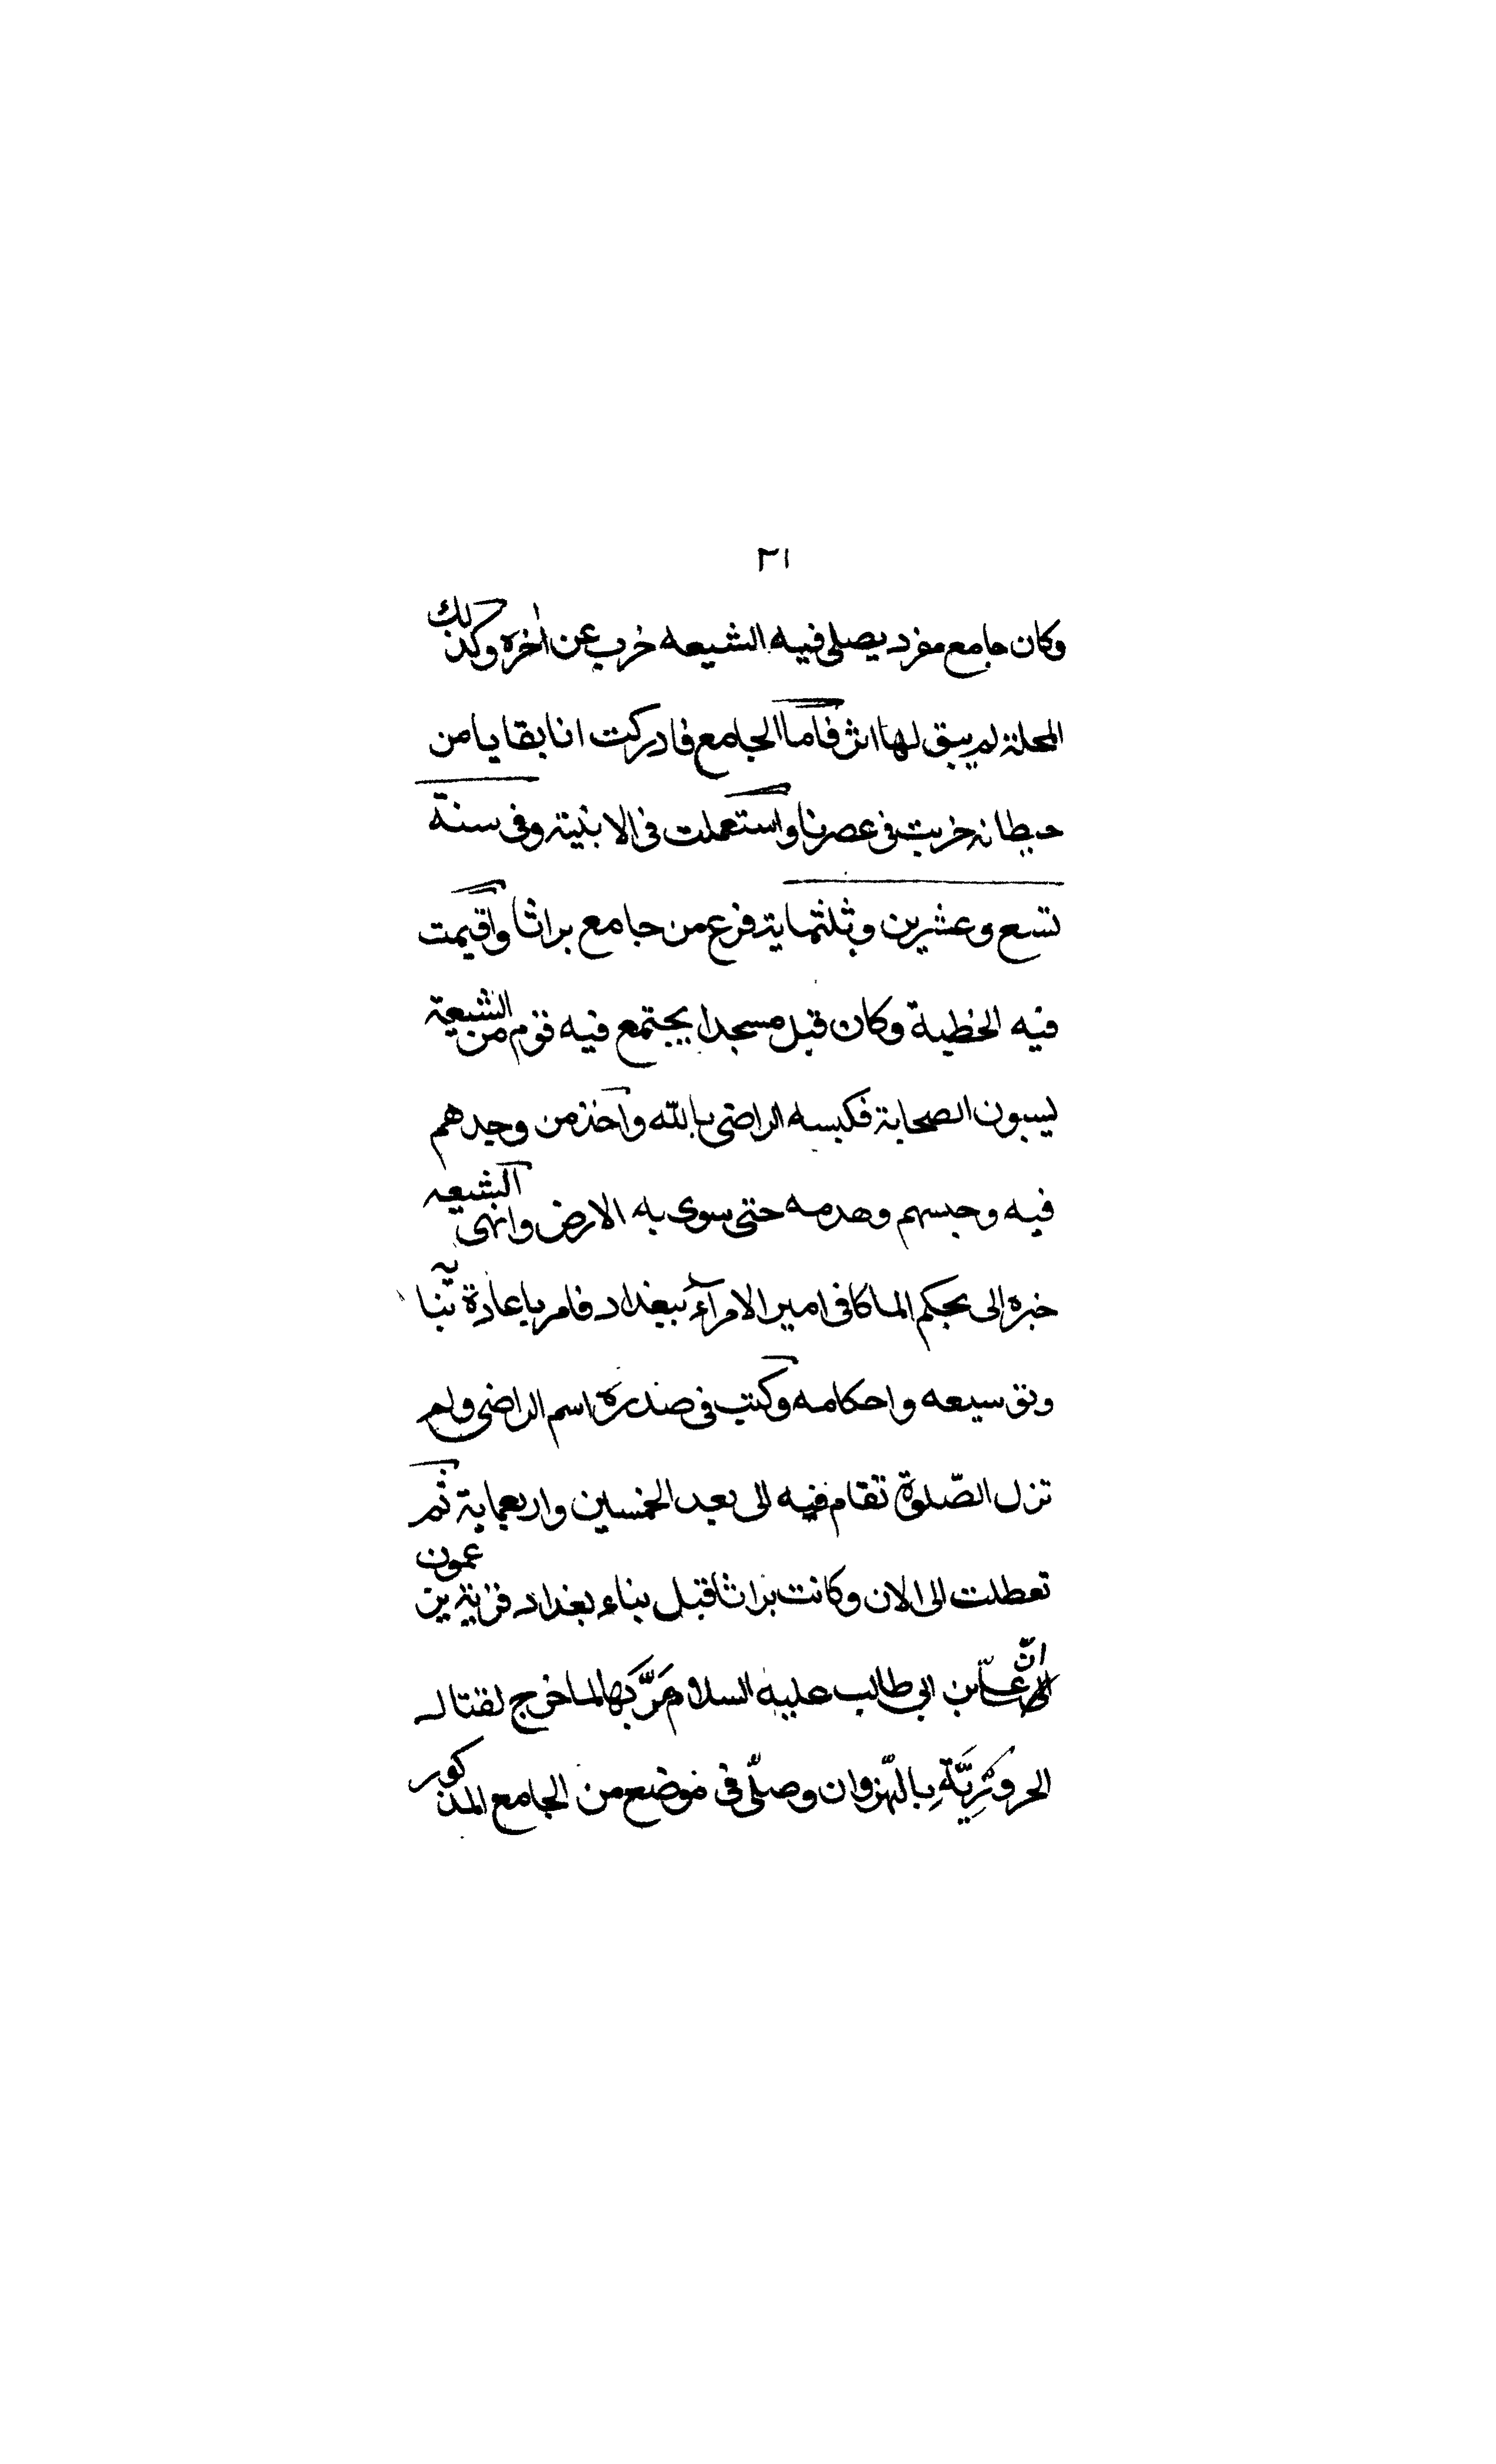 ٣١
وكان جامع مفرد يصلى فيه الشيعه خرب عن اخره وكذلك
المحلة لم يبق لها اثر فاما الجامع فادركت انا بقايا من
حيطانه خربت فى عصرنا واستعملت فى الابنية وفى سنة
تسع وعشرين وثلثماية فرغ من جامع براثا واقيمت
فيه الخطبة وكان قبل مسجدا يجتمع فيه قوم من الشيعة
يسبون الصحابة فكبسه الراضى بالله واخذ من وجدهم
فيه وحبسهم وهدمه حتى سوى به الارض وانهى الشيعه
خبره الى بجكم الماكانى امير الامرآء ببغداد فامر باعادة بنايه
وتوسيعه واحكامه وكتب فى صدره اسم الراضى ولم
تزل الصّلوة تقام فيه الى بعد الخمسين واربعماية ثم
تعطلت الى الان وكانت براثا قبل بناء بغداد قرية يزعمون
انّ عليّا بن ابى طالب عليه السلام مَرَّ بها لما خرج لقتال
الحروريَّةِ بالنّهروان وصلّى فى موضع من الجامع المذكور